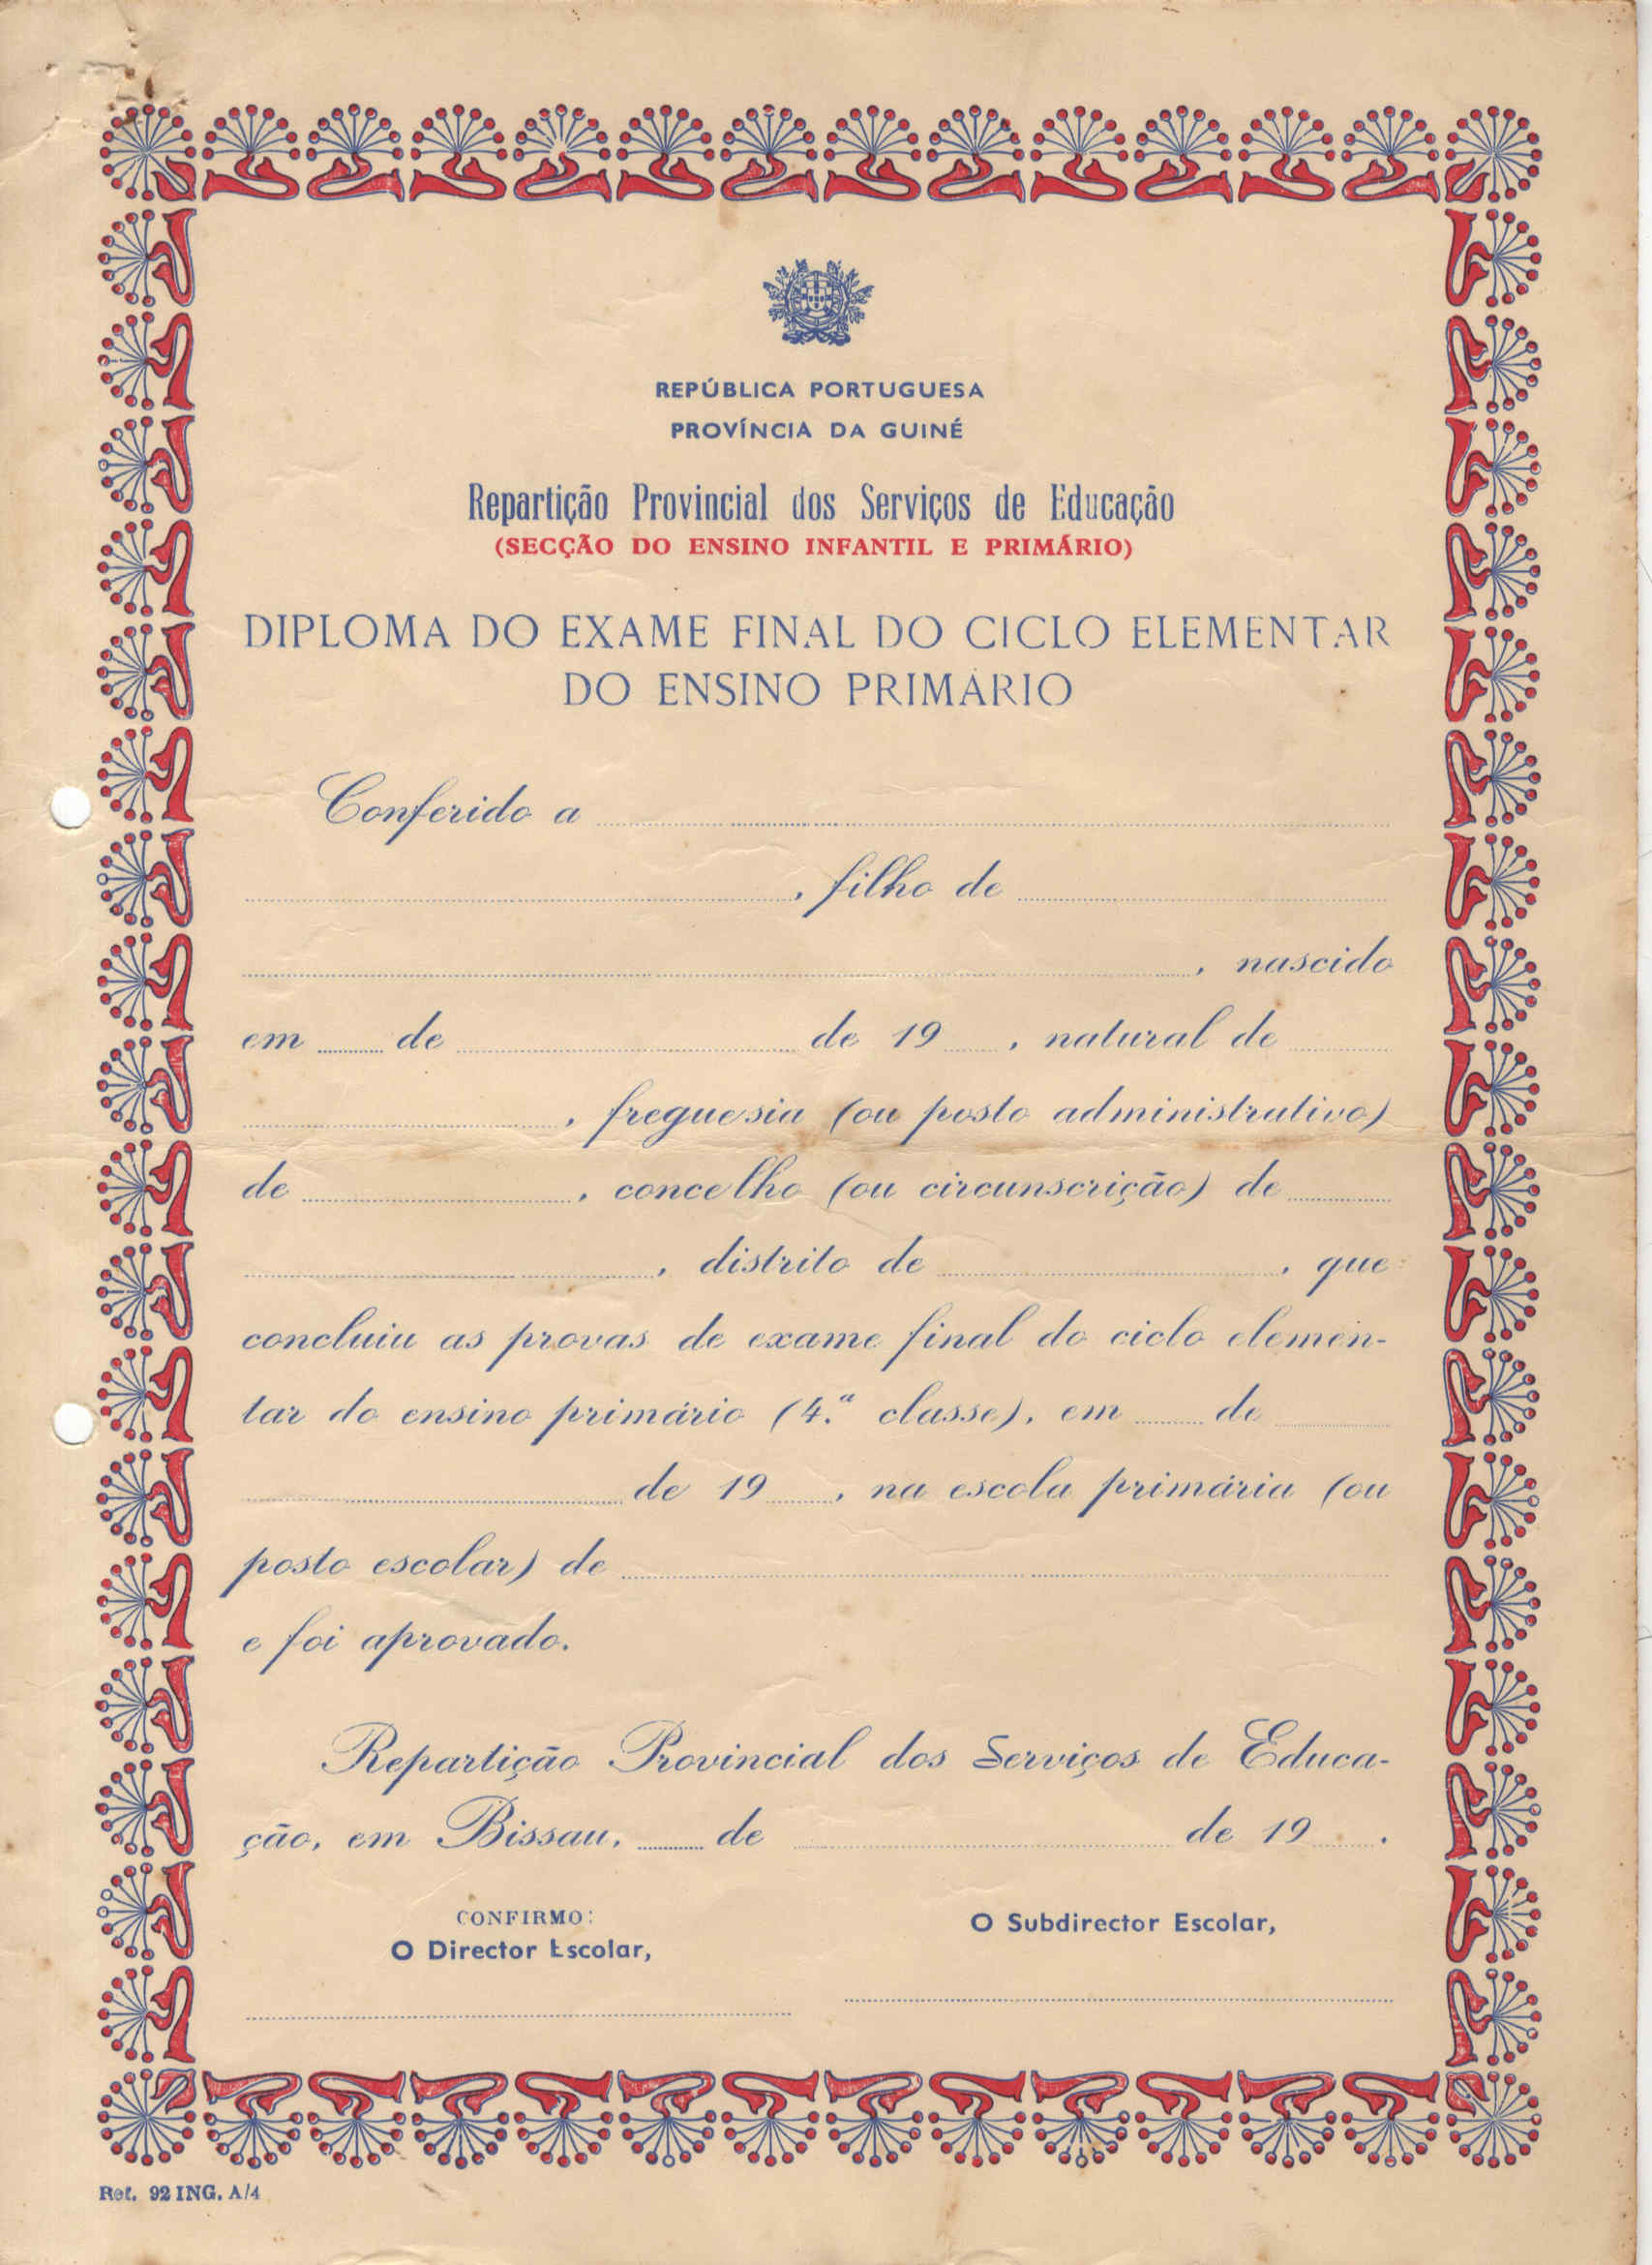 REPÚBLICA PORTUGUESA
PROVÍNCIA DA GUINÉ
Repartição Provincial dos Serviços de Educação
(SECÇÃO DO ENSINO INFANTIL E PRIMÁRIO)
DIPLOMA DO EXAME FINAL DO CICLO ELEMENTAR
DO ENSINO PRIMÁRIO
Conferido a
, filho de
, nascido
em de de 19 , natural de
, freguesia (ou posto administrativo)
de , concelho (ou circunscrição) de
, distrito de , que
concluiu as provas de exame final do ciclo elemen-
tar do ensino primário (4.ª classe), em de
de 19 , na escola primária (ou
posto escolar) de
e foi aprovado.
Repartição Provincial dos Serviços de Educa-
ção, em Bissau, de de 19 .
CONFIRMO:
O Director Escolar,
O Subdirector Escolar,
Ref. 92 ING. A/4